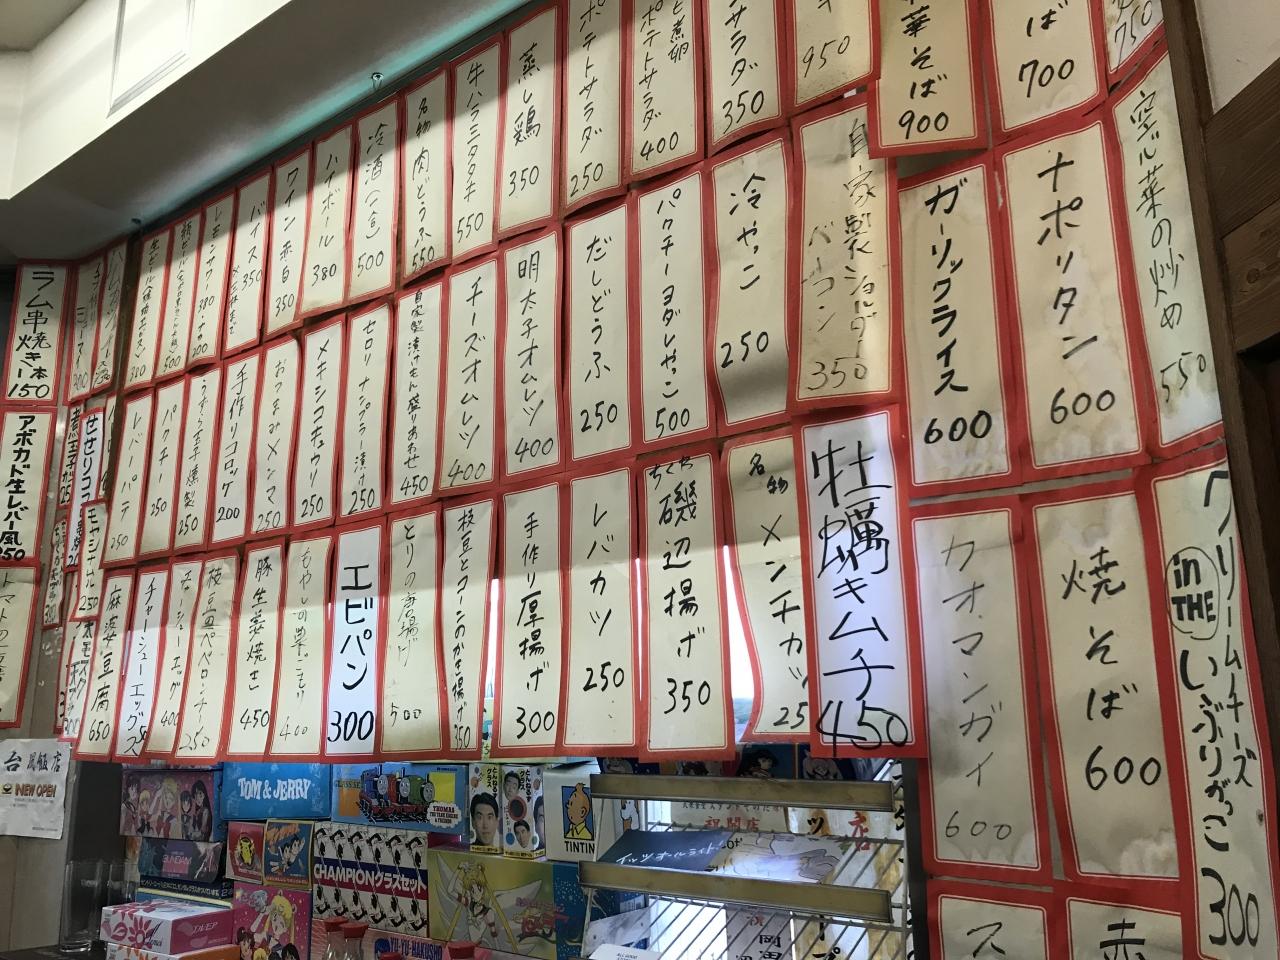 中華そば
900
ば
700
750
950
サラダ
350
と煮卵
ポテトサラダ
400
ポテトサラダ
250
蒸し鶏
350
牛ハラミタタキ
550
名物 肉どうふ
550
冷酒(一合)
500
ハイボール
380
ワイン 赤白
350
バイス
350
レモンサワー
380
空心菜の炒め
550
ナポリタン
600
ガーリックライス
600
自家製ショルダーベーコン
350
冷やっこ
250
パクチーヨダレやっこ
500
だしどうふ
250
明太子オムレツ
400
チーズオムレツ
400
自家製漬けもん盛りあわせ
450
セロリナンプラー漬け
250
メキシコキュウリ
250
おつまみメンマ
250
手作りコロッケ
200
うずら玉子燻製
250
パクチー
250
レバーパテ
250
ラム串焼き
一本
150
アボカド生レバー風
クリームチーズ
in THE
いぶりがっこ
300
焼そば
600
カオマンガイ
600
牡蠣キムチ
450
名物 メンチカツ
25
ちくわ
磯辺揚げ
350
レバカツ
250
手作り厚揚げ
300
枝豆とコーンのかき揚げ
350
とりの唐揚げ
500
エビパン
300
もやしの巣ごもり
400
豚生姜焼き
450
枝豆ペペロンチーノ
250
チャーシューエッグ
麻婆豆腐
650
ス
赤
台風飯店
NEW OPEN
TOM & JERRY
THOMAS
THE TANK ENGINE
& FRIENDS
TINTIN
CHAMPIONグラスセット
YU-YU-HAKUSHO
GUNDAM
祝開店
イッツオールライト